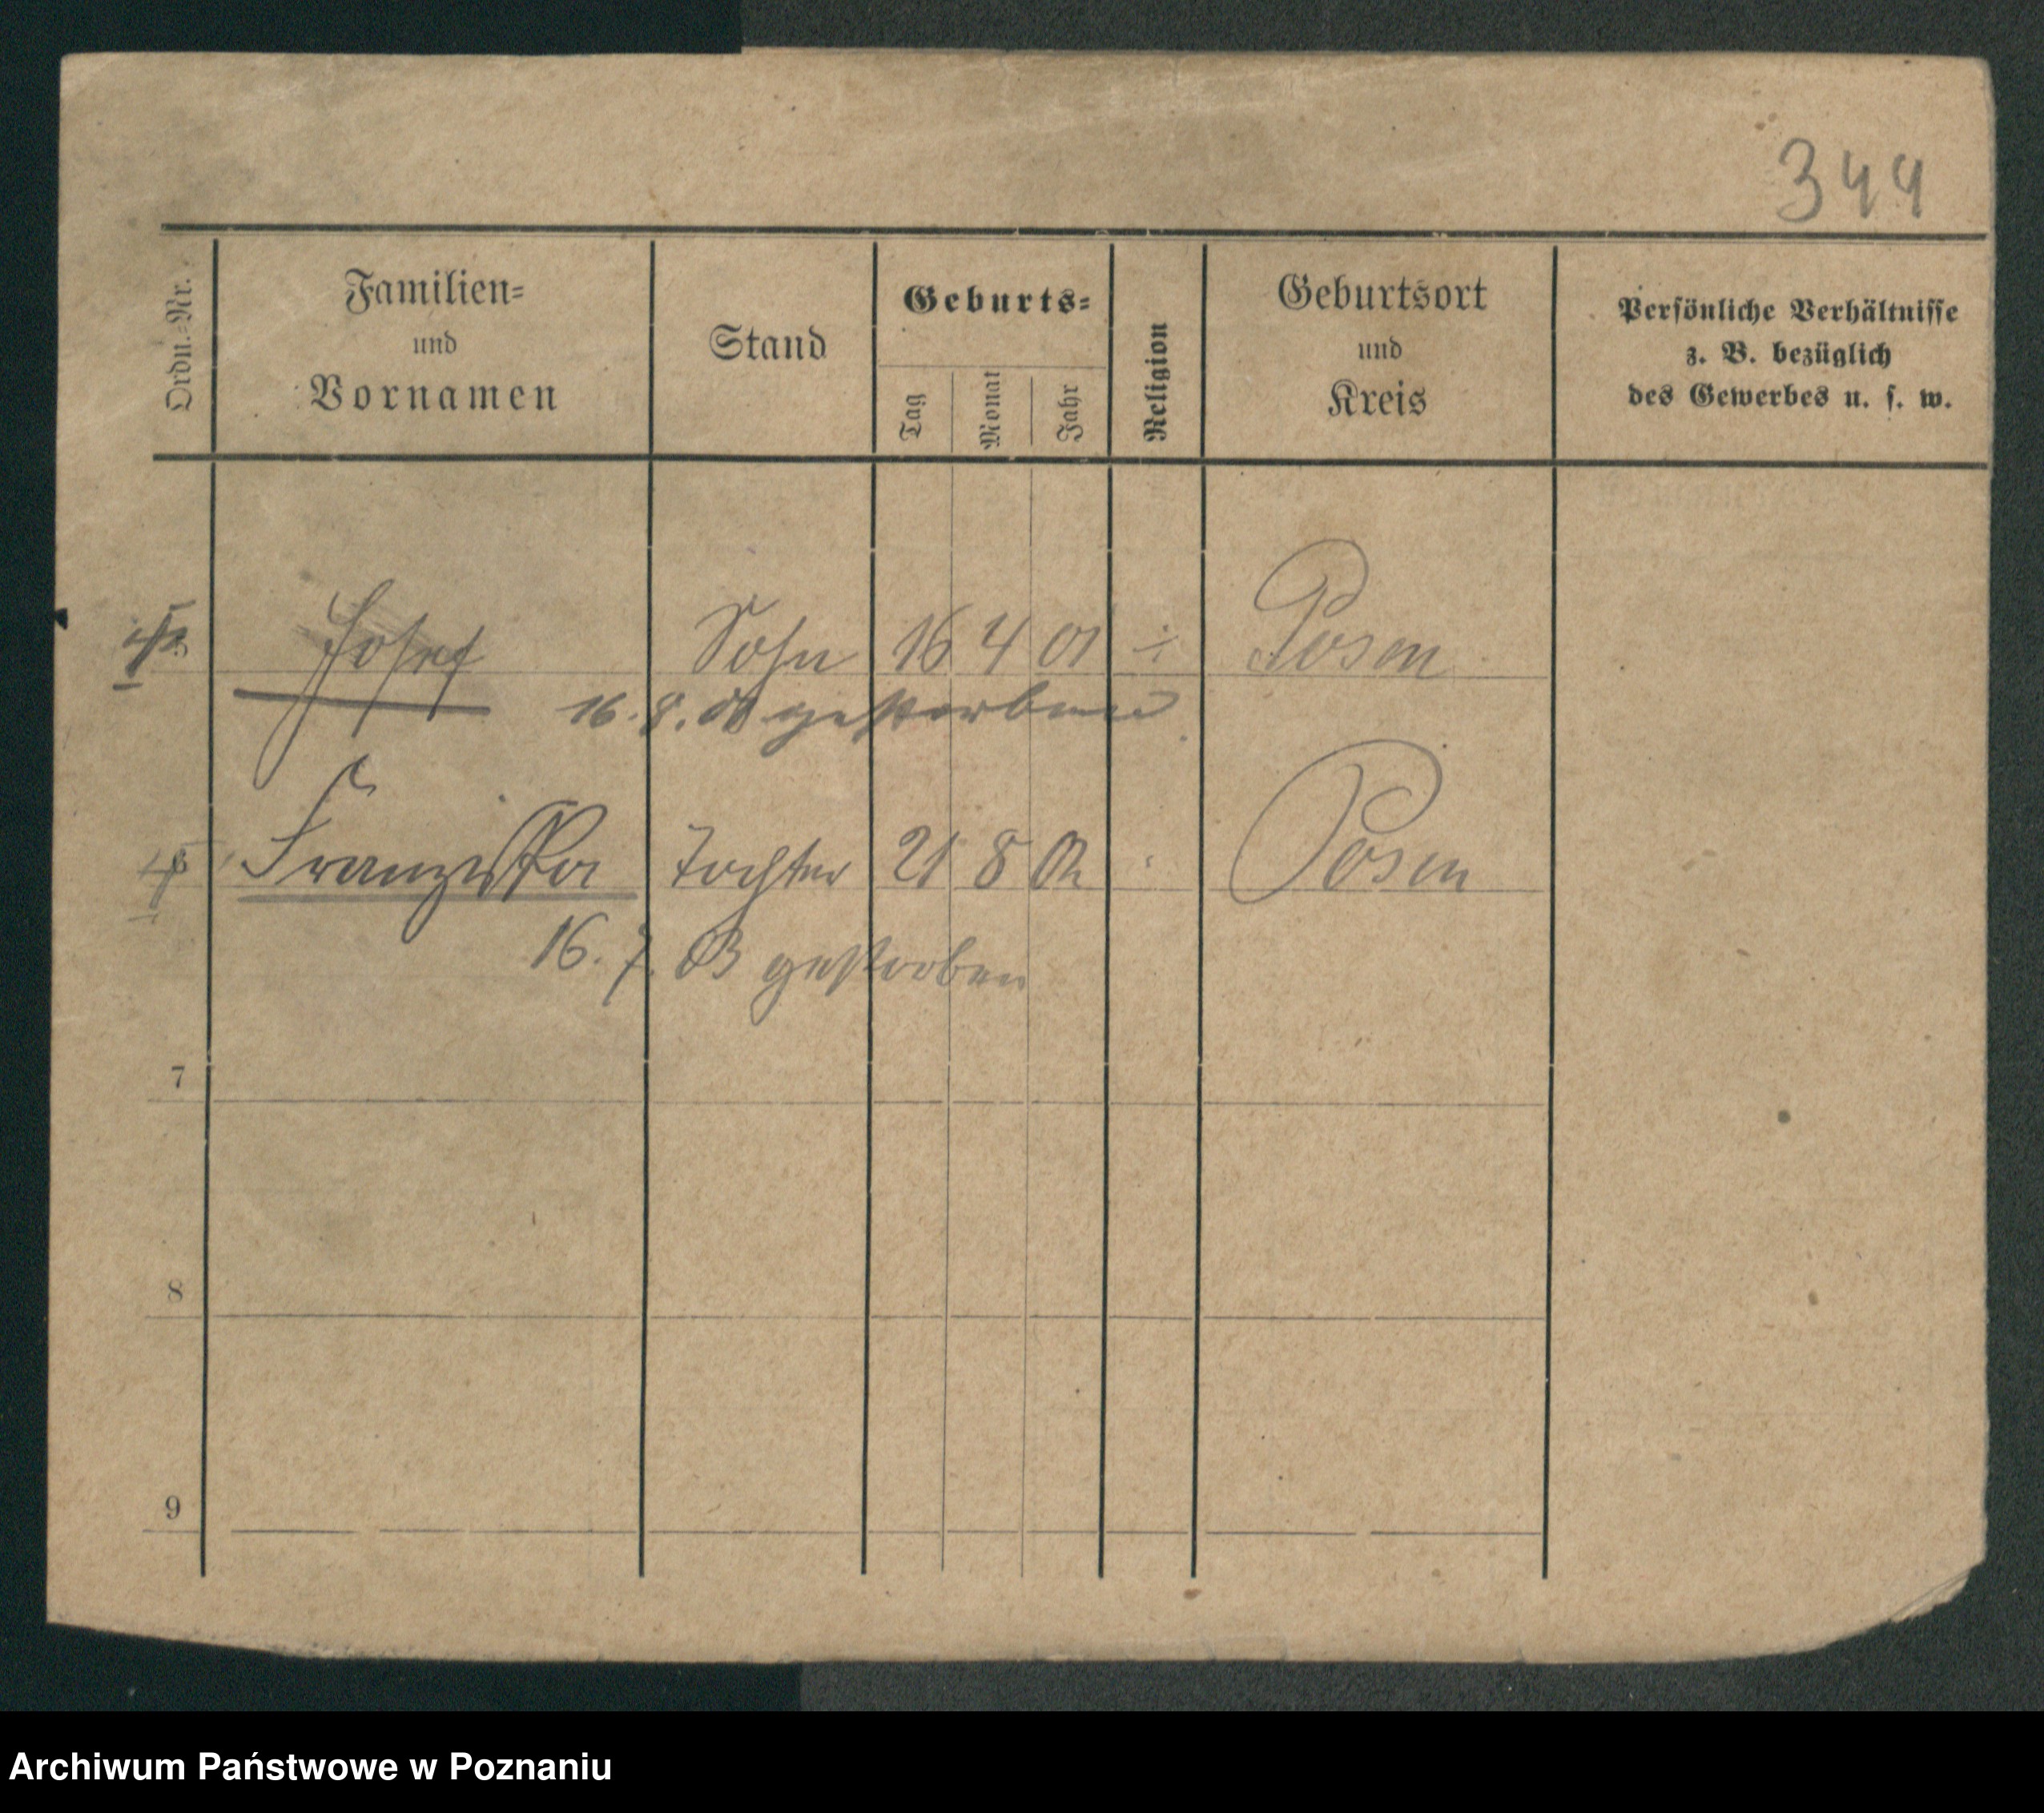 344
Ordn.-Nr.
Familien-
und
Vornamen
Stand
Geburts-
Tag
Monat
Jahr
Religion
Geburtsort
und
Kreis
Persönliche Verhältnisse
z. B. bezüglich
des Gewerbes u. s. w.
Josef Sohn 16 4 01 Posen
16. 8. gestorben
Franziska Tochter 21 8 02 Posen
16. 7. 03 gestorben
7
8
9
Archiwum Państwowe w Poznaniu